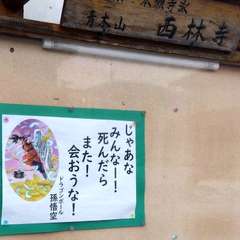 本願寺派
青木山 西林寺
じゃあな
みんなー!
死んだら
また!
会おうな!
ドラゴンボール
孫悟空